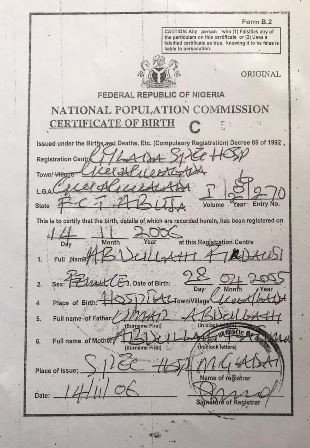 Form B.2
CAUTION: Any person who (1) Falsifies any of
the particulars on this certificate or (2) Uses a
falsified certificate as true, knowing it to be false is
liable to persecution.
ORIGINAL
FEDERAL REPUBLIC OF NIGERIA
NATIONAL POPULATION COMMISSION
CERTIFICATE OF BIRTH C
Issued under the Births and Deaths, Etc. (Compulsory Registration) Decree 69 of 1992
Registration Centre
Town/Village
L.G.A. 270
State F.C.T ABUJA Volume Year Entry No.
This is to certify that the birth, details of which are recorded herein, has been registered on
14 11 2006
Day Month Year at this Registration Centre
1. Full Name ABDULLAHI FIRDAUSI
2. Sex: Female 3. Date of Birth: 28 2005
Day Month Year
4 Place of Birth: HOSPITAL Town/Village
5. Full name of Father UMAR ABDULLAHI
(Surname First) (in block letters)
6. Full name of Mother ABDULLAHI
(Surname First) (in block letters)
Place of Issue: HOSP
Name of registrar
Date: 14/11/06
Signature of Registrar